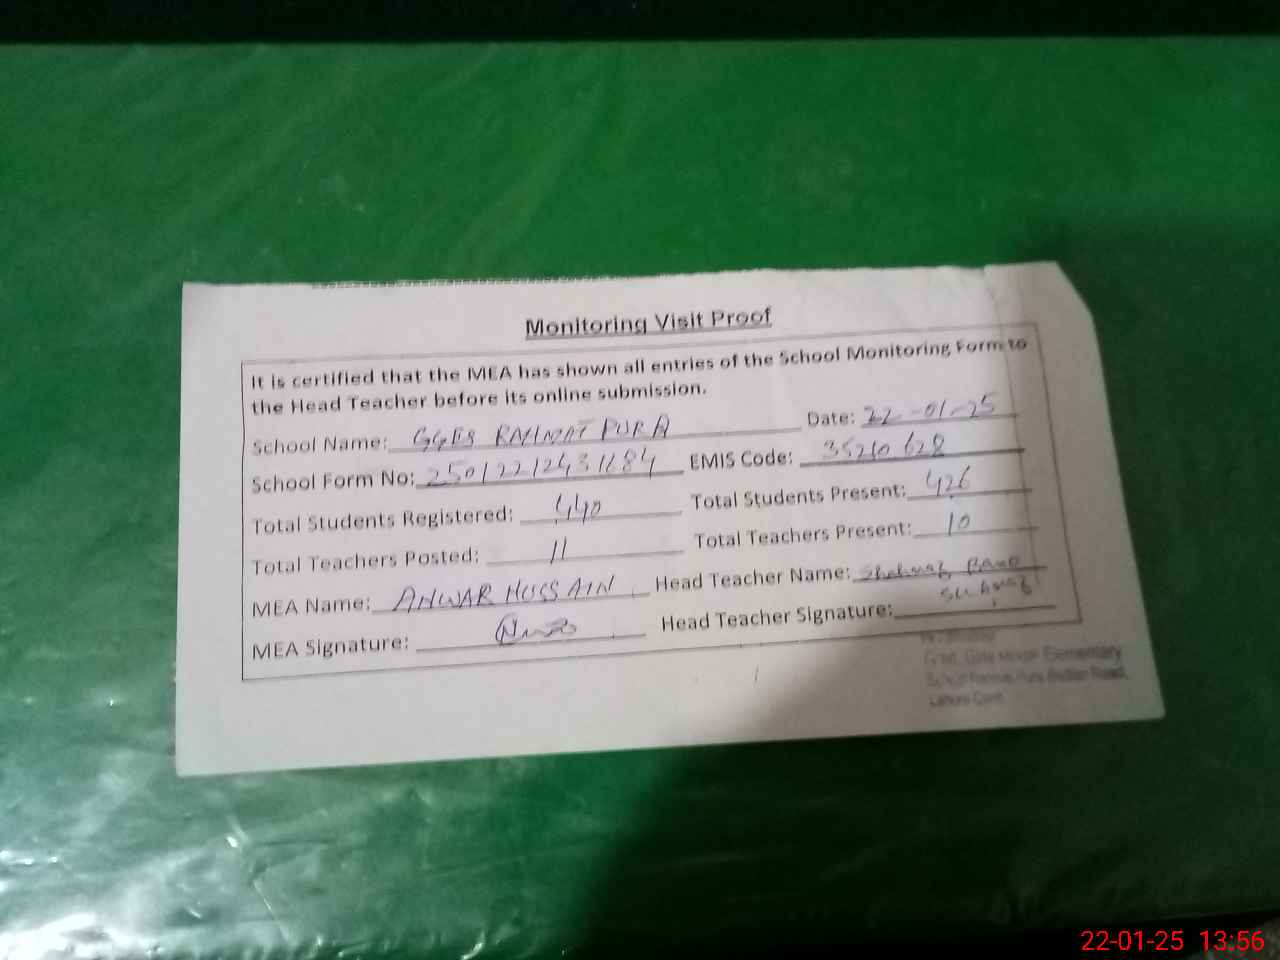 Monitoring Visit Proof
It is certified that the MEA has shown all entries of the School Monitoring Form to
the Head Teacher before its online submission.
School Name: GGES RAHMAT PURA Date: 22-01-25
School Form No: 250122124311284 EMIS Code: 35210628
Total Students Registered: 440 Total Students Present: 426
Total Teachers Posted: 11 Total Teachers Present: 10
MEA Name: ANWAR HUSSAIN Head Teacher Name: Shahnaz Bano
MEA Signature: Head Teacher Signature: Shahnaz
Govt. Girls Elementary
School Rahmat Pura Bedian Road,
Lahore Cantt
22-01-25 13:56